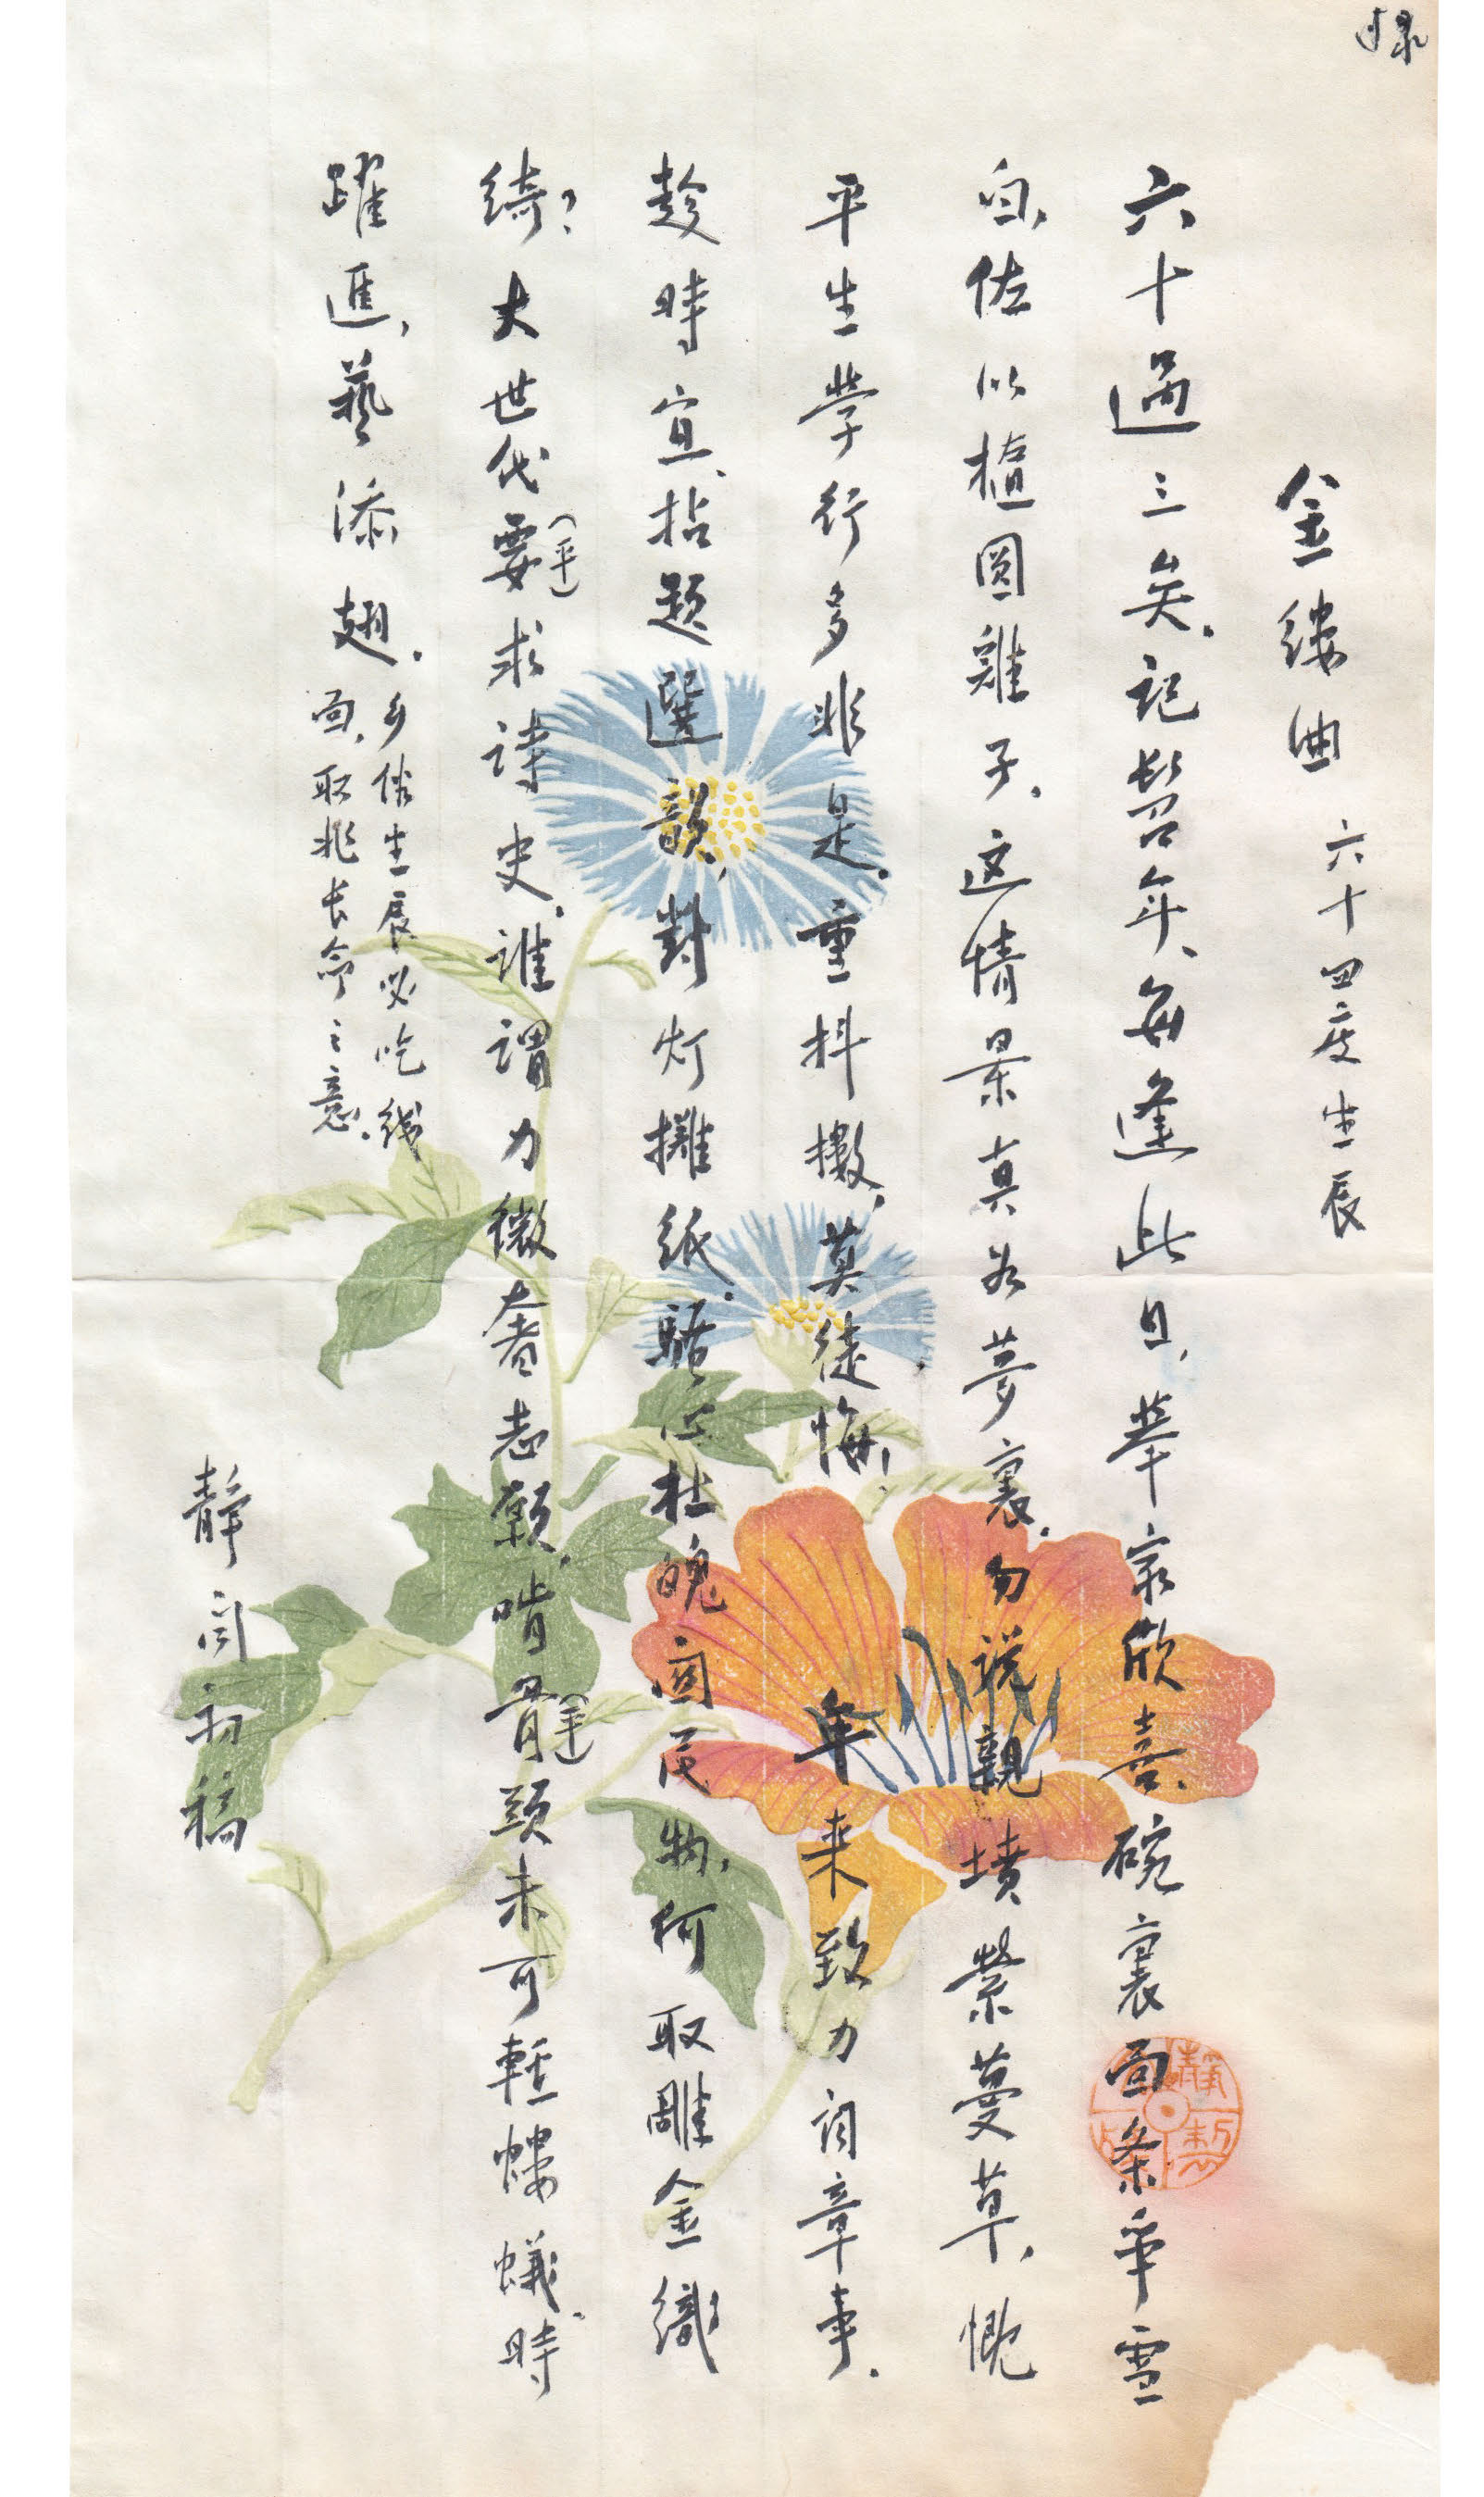 录
金缕曲 六十四度生辰
六十過三矣。記髫年、每逢此日,舉家欣喜。碗裏面条争雪
白,佐以櫃圆雞子。这情景真如夢裏。勿説親墳縈蔓草,慨
平生學行多非是。重抖擞,莫徒悔。 年来致力词章事。
趁時宜、拈题選韵,對灯攤紙。騷心杜魄

 物,何取雕金織
绮?大世代要(平)求詩史。谁謂力微奢志願,啃骨(平)頭未可輕螻蟻。時
躍進,藝添翅。
乡俗生辰必吃线
面,取兆长命之意。
静闻初稿